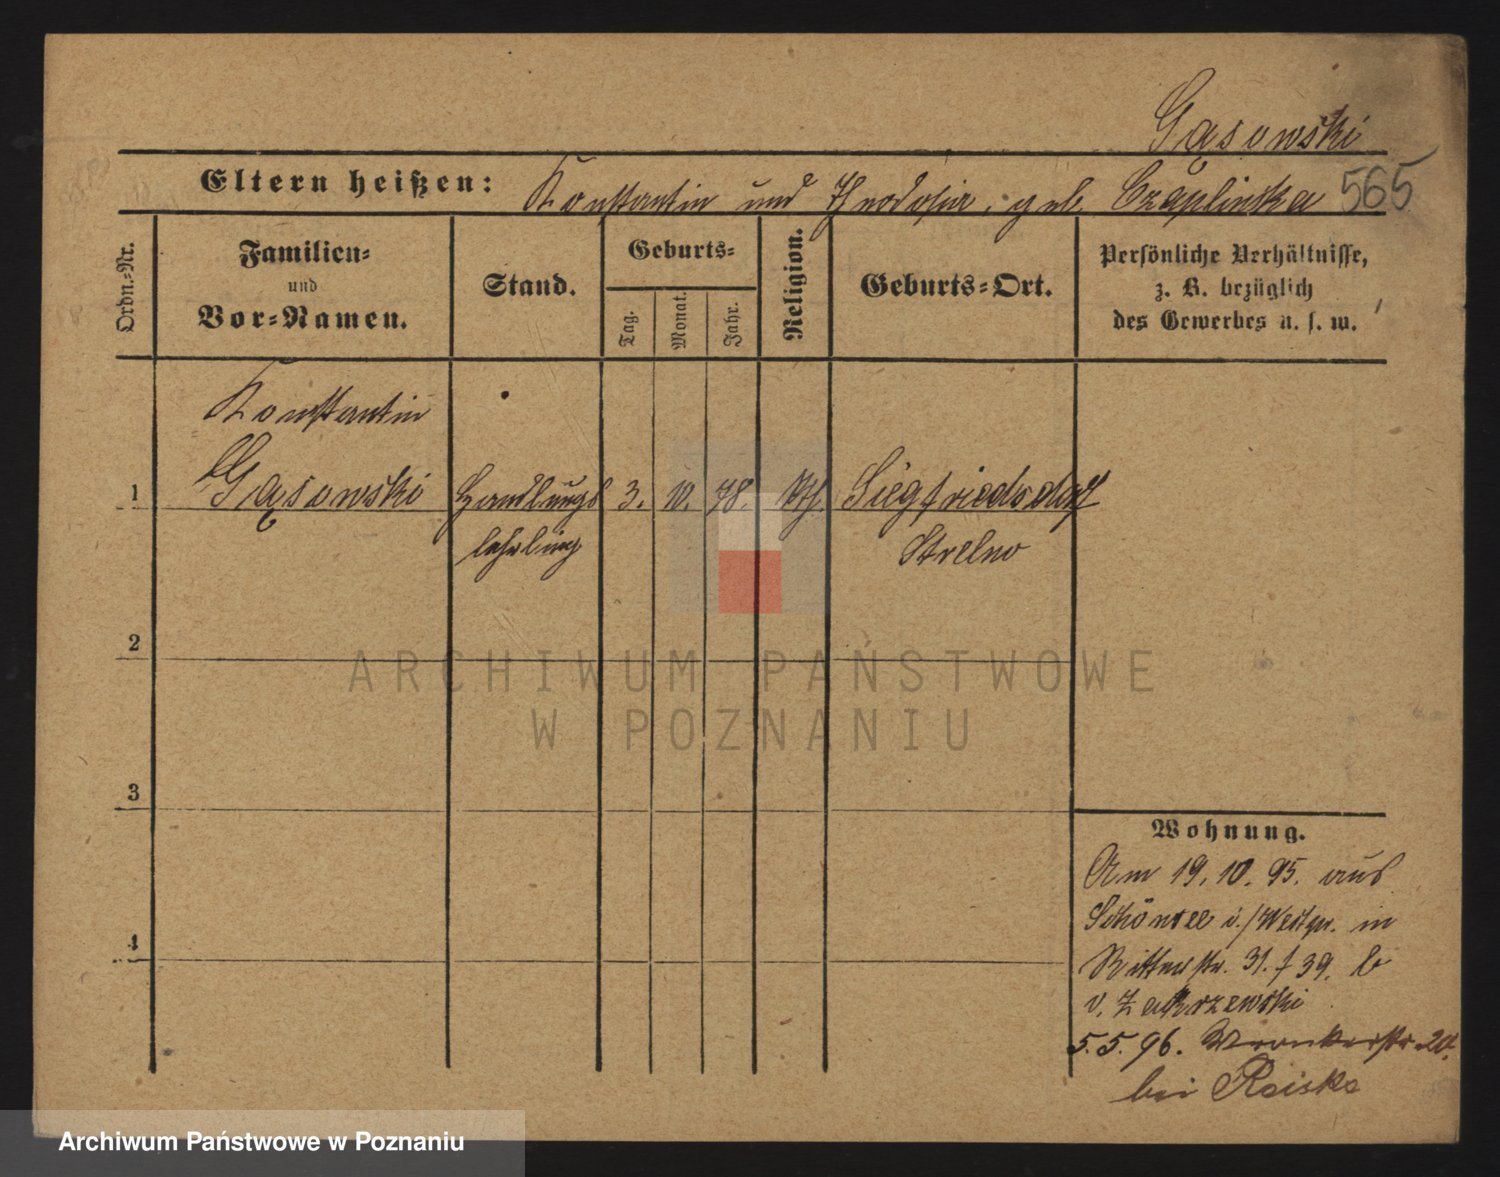 Gąsowski
Eltern heißen: Konstantin und Theodosia, geb. Czaplinska 565
Ordn.-Nr.
Familien-
und
Vor-Namen.
Stand.
Geburts-
Tag.
Monat.
Jahr.
Religion.
Geburts-Ort.
Persönliche Verhältnisse,
z. B. bezüglich
des Gewerbes u. s. w.
Konstantin
1 Gąsowski Handlungs 3. 10. 78. kth. Siegfriedsdorf
lehrling Strelno
2
3
4
ARCHIWUM PAŃSTWOWE
W POZNANIU
Wohnung.
Am 19. 10. 95. aus
Schönsee i./Westpr. in
Ritterstr. 31. / 39. b
v. Zakrzewski
5. 5. 96. Wronkerstr.
bei
Archiwum Państwowe w Poznaniu